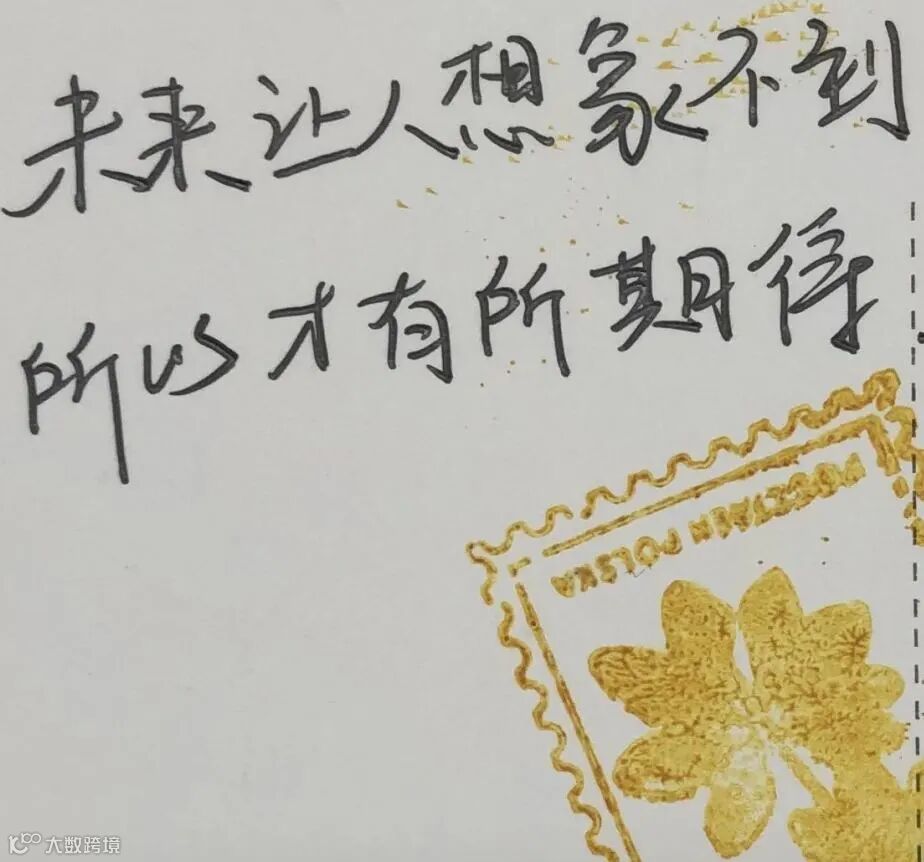 未来让人想象不到
所以才有所期待
POCZTAEM POLSKA
大数跨境